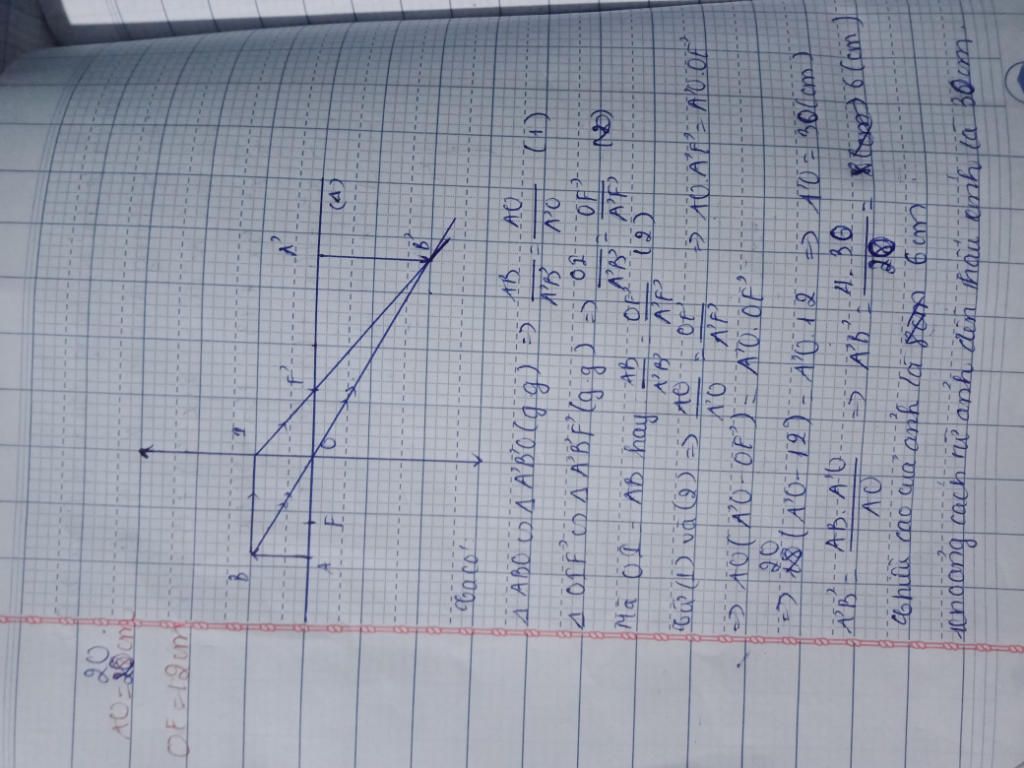 20
AO = cm
OF = 12 cm
B
I
A
F
O
F'
A'
B'
(Δ)
Ta có:
Δ ABO ∽ Δ A'B'O (g g) => AB/A'B' = AO/A'O (1)
Δ OIF' ∽ Δ A'B'F' (g g) => OI/A'B' = OF'/A'F'
Mà OI = AB hay AB/A'B' = OF'/A'F' (2)
Từ (1) và (2) => AO/A'O = OF'/A'F' => AO A'F' = A'O.OF'
=> AO (A'O - OF') = A'O.OF'
=> 20 (A'O - 12) = A'O.12 => A'O = 30 (cm)
A'B' = AB.A'O/AO => A'B' = 4.30/20 = 6 (cm)
Chiều cao của ảnh là 6 cm
khoảng cách từ ảnh đến thấu ảnh là 30 cm